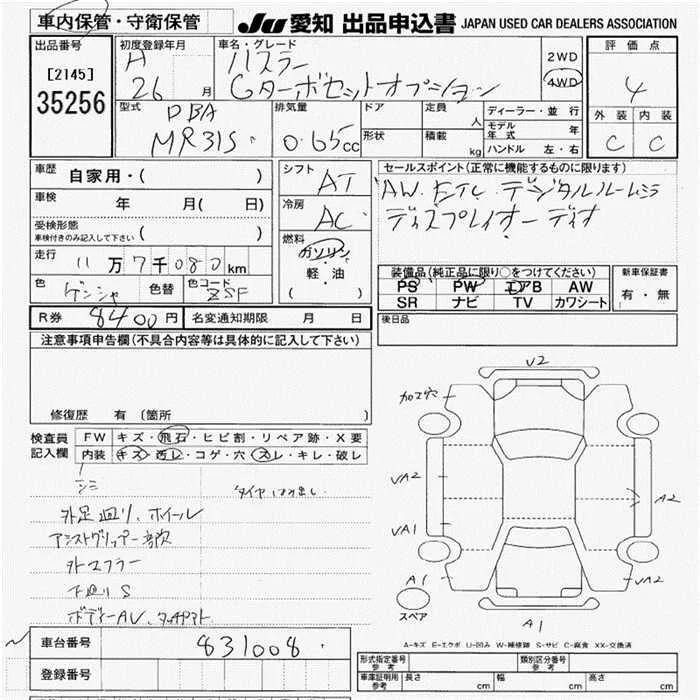 車内保管・守衛保管
JU 愛知 出品申込書 JAPAN USED CAR DEALERS ASSOCIATION
出品番号
[2145]
35256
初度登録年月
H
26 月
車名・グレード
ハスラー
Gターボセットオプション
2WD
4WD
評価点
4
外装 内装
C C
型式
DBA
MR31S
排気量
0.65cc
ドア
形状
定員 人
積載 kg
ディーラー・並行
モデル年式 年
ハンドル 左・右
車歴 自家用・( )
車検 年 月( 日)
受検形態
車検付きのみ記入して下さい ( )
走行 11万7千080km
色 ゲンシャ 色替 色コード ZSF
シフト AT
冷房 AC
燃料
ガソリン
軽・油
( )
セールスポイント(正常に機能するものに限ります)
AW. ETC. デジタルルームミラー
ディスプレイオーディオ
装備品(純正品に限り○をつけてください)
PS PW エアB AW
SR ナビ TV カワシート
新車保証書
有・無
R券 8400円 名変通知期限 月 日
後日品
注意事項申告欄(不具合内容等は具体的に記入して下さい)
修復歴 有 (箇所 )
検査員記入欄
FW キズ・飛石・ヒビ割・リペア跡・X要
内装 キズ・汚レ・コゲ・穴・スレ・キレ・破レ
シミ
タイヤはみ出し
外足廻り、ホイール
アシストグリップ一部欠
外マフラー
下廻りS
V2
加工穴
VA2
VA1
A1
A2
VA2
A1
スペア
A-キズ E-エクボ U-凹み W-補修跡 S-サビ C-腐食 XX-交換済
車台番号 831008
登録番号
形式指定番号 参考
類別区分番号 参考
車庫証明用 参考 長さ cm 幅 cm 高さ cm